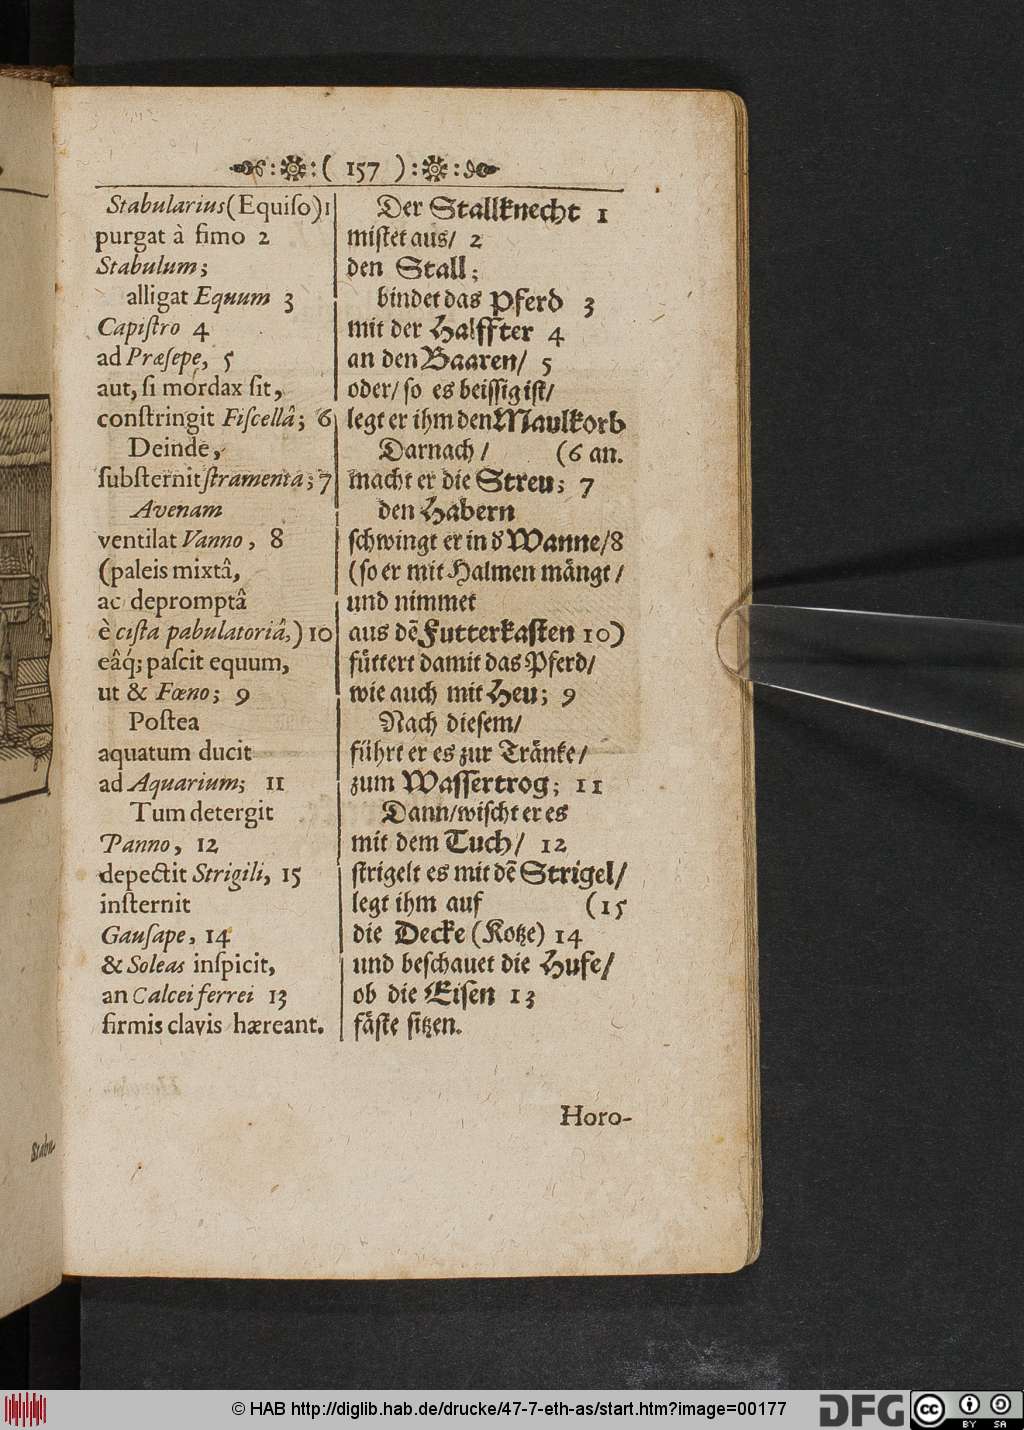 ( 157 )
Stabularius (Equiſo) 1
purgat à fimo 2
Stabulum;
alligat Equum 3
Capiſtro 4
ad Præſepe, 5
aut, ſi mordax ſit,
conſtringit Fiſcellâ; 6
Deinde,
ſubſternit ſtramenta; 7
Avenam
ventilat Vanno, 8
(paleis mixtâ,
ac depromptâ
è ciſta pabulatoriâ,) 10
eâq́; paſcit equum,
ut & Fœno; 9
Poſtea
aquatum ducit
ad Aquarium; 11
Tum detergit
Panno, 12
depectit Strigili, 15
inſternit
Gauſape, 14
& Soleas inſpicit,
an Calcei ferrei 13
firmis clavis hæreant.
Der Stallknecht 1
miſtet aus/ 2
den Stall;
bindet das Pferd 3
mit der Halffter 4
an den Baaren/ 5
oder/ ſo es beiſſig iſt/
legt er ihm den Maulkorb
Darnach/ (6 an.
macht er die Streu; 7
den Habern
ſchwingt er in d' Wanne/ 8
(ſo er mit Halmen mängt/
und nimmet
aus dē Futterkaſten 10)
füttert damit das Pferd/
wie auch mit Heu; 9
Nach dieſem/
führt er es zur Tränke/
zum Waſſertrog; 11
Dann/ wiſcht er es
mit dem Tuch/ 12
ſtrigelt es mit dē Strigel/
legt ihm auf (15
die Decke (Kotze) 14
und beſchauet die Hufe/
ob die Eiſen 13
fäſte ſitzen.
Horo-
Stabu-
© HAB http://diglib.hab.de/drucke/47-7-eth-as/start.htm?image=00177
DFG
cc
BY SA